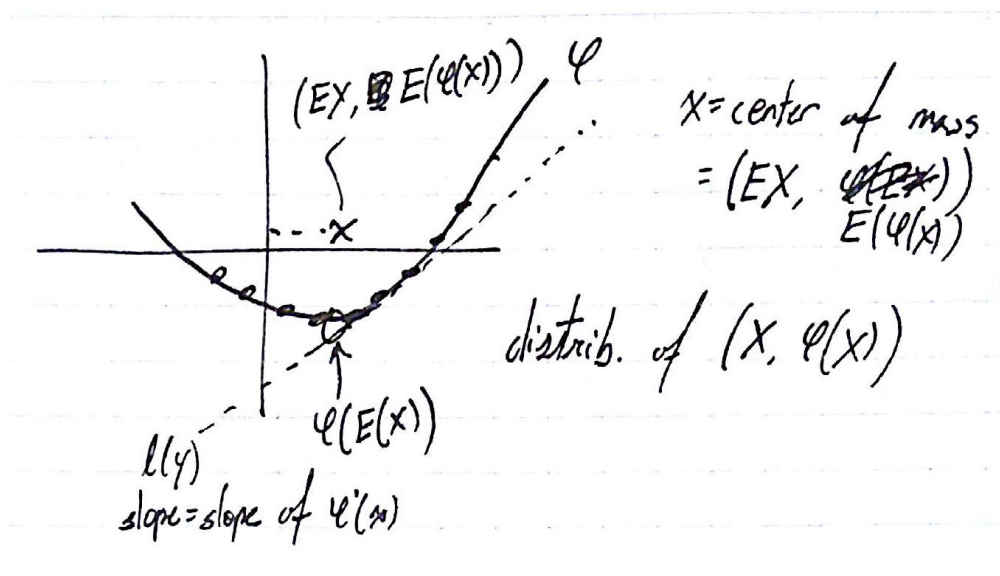 (EX, E(φ(X)))
φ
x = center of mass
= (EX, φ(EX))
E(φ(X)
x
distrib. of (X, φ(X))
φ(E(X))
l(y)
slope = slope of φ'(x)